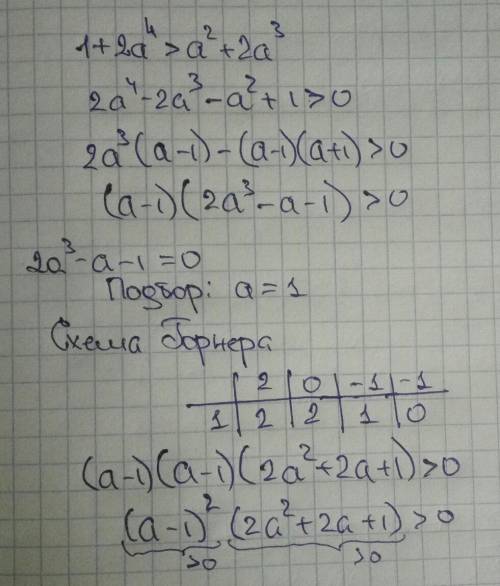 1+2a⁴>a²+2a³
2a⁴-2a³-a²+1>0
2a³(a-1)-(a-1)(a+1)>0
(a-1)(2a³-a-1)>0
2a³-a-1=0
Подбор: a=1
Схема Горнера
2 0 -1 -1
1 2 2 1 0
(a-1)(a-1)(2a²+2a+1)>0
(a-1)² (2a²+2a+1)>0
>0 >0